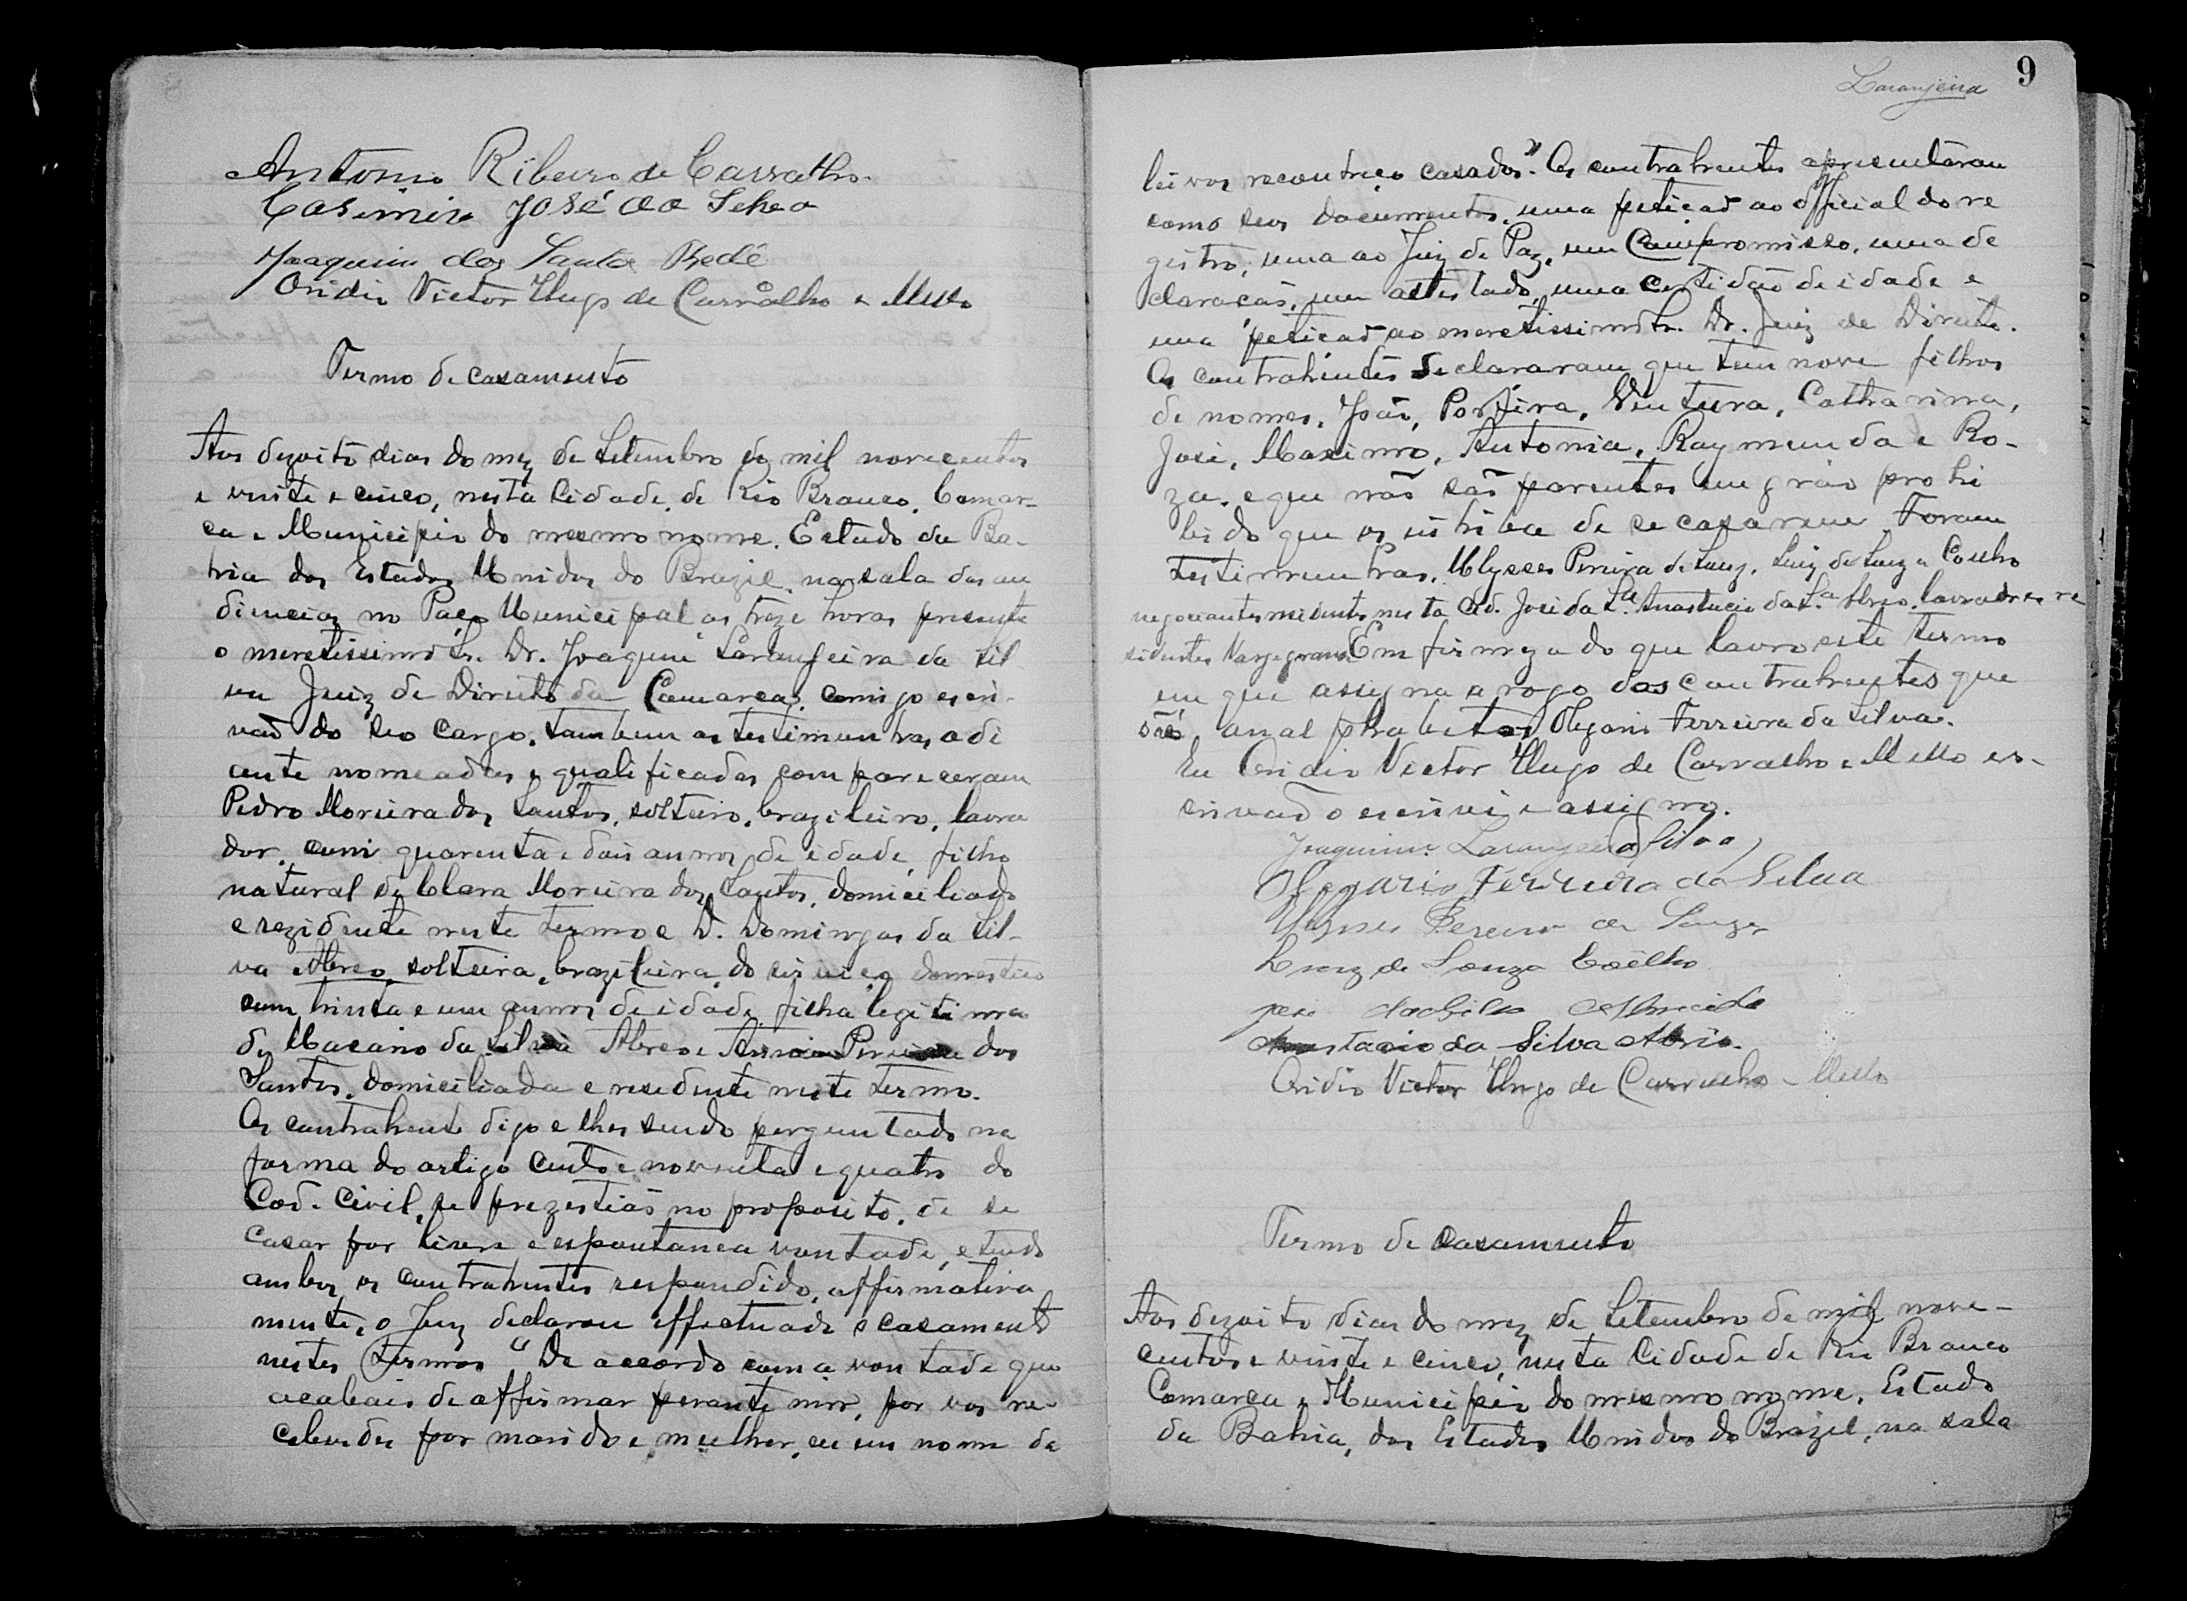 Antonio Ribeiro de Carvalho
Casimiro José da Silva
Joaquim dos Santos Bedê
Ovidio Victor Hugo de Carvalho e Mello
Termo de casamento
Aos dezoito dias do mez de Setembro de mil novecentos
e vinte e cinco, nesta Cidade de Rio Branco, Comar-
ca e Municipio do mesmo nome. Estado da Ba-
hia dos Estados Unidos do Brazil, na sala das au
diencias no Paço Municipal as treze horas presente
o meretissimo Sr. Dr. Joaquim Laranjeira da Sil
va Juiz de Direito da Comarca, comigo escri-
vão do seo cargo, tambem as testimunhas adi
ante nomeadas e qualificadas compareceram
Pedro Moreira dos Santos, solteiro, brazileiro, lavra
dor, com quarenta e dois annos de idade, filho
natural de Clara Moreira dos Santos, domiciliado
e rezidente neste termo e D. Domingas da Sil-
va Abreo, solteira, brazileira, do serviço domestico
com trinta e um annos de idade filha legitima
de Macario da Silva Abreo e Pereira dos
Santos, domiciliada e residente neste termo.
Os contrahente digo e lhes sendo perguntado na
forma do artigo cento e noventa e quatro do
Cod. Civil, se prezestião no proposito, de se
casar por livre e espontanea vontade, e tendo
ambos os contrahentes respondido, affirmativa
mente, o Juiz declarou effectuado o casamento
nestes termos "De accordo com a vontade que
acabais de affirmar perante mim, por vos re-
ceberdes por marido e mulher, eu em nome da
Laranjeira
9
lei vos reconheço casados". Os contrahentes apresentaram
como seus documentos, uma petição ao official do re
gistro, uma ao Juiz de Paz, um Compromisso, uma de
claração, um attestado, uma certidão de idade e
uma petição ao meretissimo Sr. Dr. Juiz de Direito.
Os contrahentes declararam que tem nove filhos
de nomes, João, Porfira, Ventura, Catharina,
José, Maximo, Antonia, Raymunda e Ro-
za, e que não são parentes em gráo prohi
bido que os de se casarem. Foram
testimunhas, Ulysses Pereira de Souza, Luiz de Souza Coelho
negociantes residentes nesta Cid. José da Sa. Anastacio da Sa. Abreo, lavradores re
sidentes Em firmeza do que lavro este termo
em que assigna a rogo dos contrahentes que
são analphabetos Olegario Ferreira da Silva.
Eu Ovidio Victor Hugo de Carvalho e Mello es-
crivão o escrevi e assigno.
Joaquim Laranjeira da Silva
Olegario Ferreira da Silva
Ulysses Pereira de Souza
Luiz de Souza Coêlho
José da Silva Almeida
Anastacio da Silva Abrio.
Ovidio Victor Hugo de Carvalho e Mello
Termo de casamento
Aos dezoito dias do mez de Setembro de mil nove-
centos e vinte e cinco, nesta Cidade de Rio Branco
Comarca e Municipio do mesmo nome, Estado
da Bahia, dos Estados Unidos do Brazil, na sala